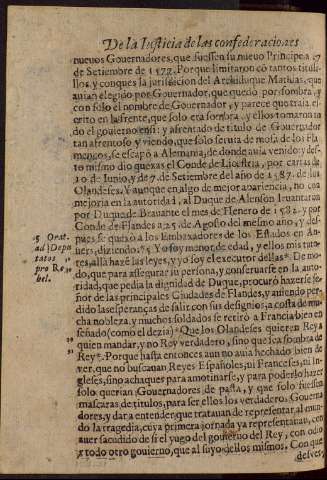 De la Iusticia de las confederaciones
nueuos Gouernadores, que fuessen su nueuo Principe a 27
de Setiembre de 1577. Porque limitaron cō tantos titule-
llos, y conques la jurisdicion del Archiduque Matias, que
auian elegido por Gouernador, que quedò por sombra, y
con solo el nombre de Gouernador, y parece que traìa es-
crito en la frente, que solo era sombra, y ellos tomaron to
do el gouierno en si: y afrentado de titulo de Gouernador
tan afrentoso y viendo, que solo seruia de mofa de los Fla
mencos, se escapò a Alemania, de donde auia venido; y des-
to mismo dio quexas el Conde de por cartas de
10 de Iunio, y de 7. de Setiembre del año de 1587. de los
Olandeses. Y aunque en algo de mejor apariencia, no con
mejoria en la autoridad, al Duque de Alenson leuantaron
por Duque de Brauante el mes de Henero de 1582. y por
Conde de Flandes a 25. de Agosto del mismo año, y des-
pues se quexò a los Embaxadores de los Estados en An-
5 Orat.
ad Depu
tatos
pro Re
bel.
uers, diziendo: 5 Yo soy menor de edad, y ellos mis tuto-
res, allà haze las leyes, y yo soy el executor dellas. De mo-
do, que para assegurar su persona, y conseruarse en la auto-
ridad, que pedia la dignidad de Duque, procurò hazerse se-
ñor de las principales Ciudades de Flandes, y auiendo per-
dido las esperanças de salir con sus designios, a costa de mu-
cha nobleza, y muchos soldados se retirò a Francia bien en
señado (como el dezia) Que los Olandeses quieren Rey a
quien mandar, y no Rey verdadero, sino que sea sombra de
Rey. Porque hasta entonces aun no auia hechado bien de
ver, que no buscauan Reyes Españoles, ni Franceses, ni In-
gleses, sino achaques para amotinarse, y para poderlo hazer
solo querian Gouernadores de pasta, y que solo fuessen
mascaras de titulos, para ser ellos los verdaderos Gouerna
dores, y dar a entender, que tratauan de representar al mun-
do la tragedia, cuya primera jornada ya representauan, con
auer sacudido de si el yugo del gouierno del Rey, con odio
a todo otro gouierno, que al suyo dellos mismos. Con que